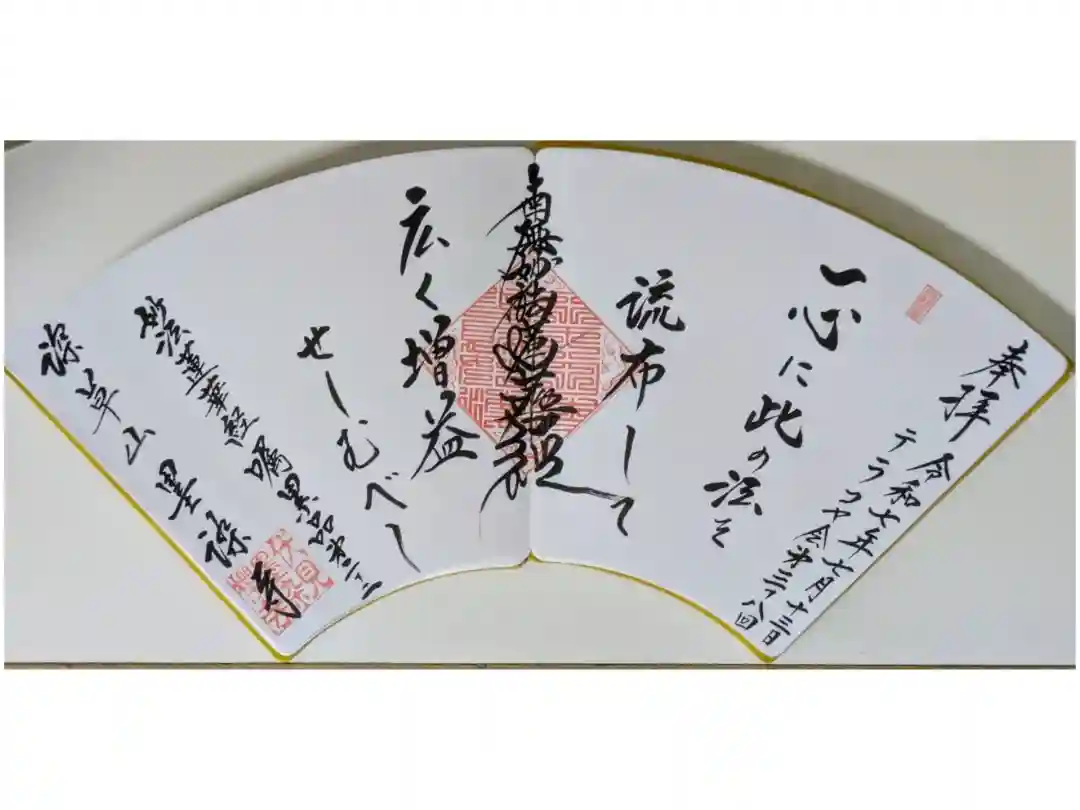 奉拝
令和七年七月十三日
テラコヤ会第三十八回
一心に此の法を
流布して
南無妙法蓮華経
広く増益
せしむべし
妙法蓮華経嘱累品第二十二
深草山墨染寺
伏見
墨染